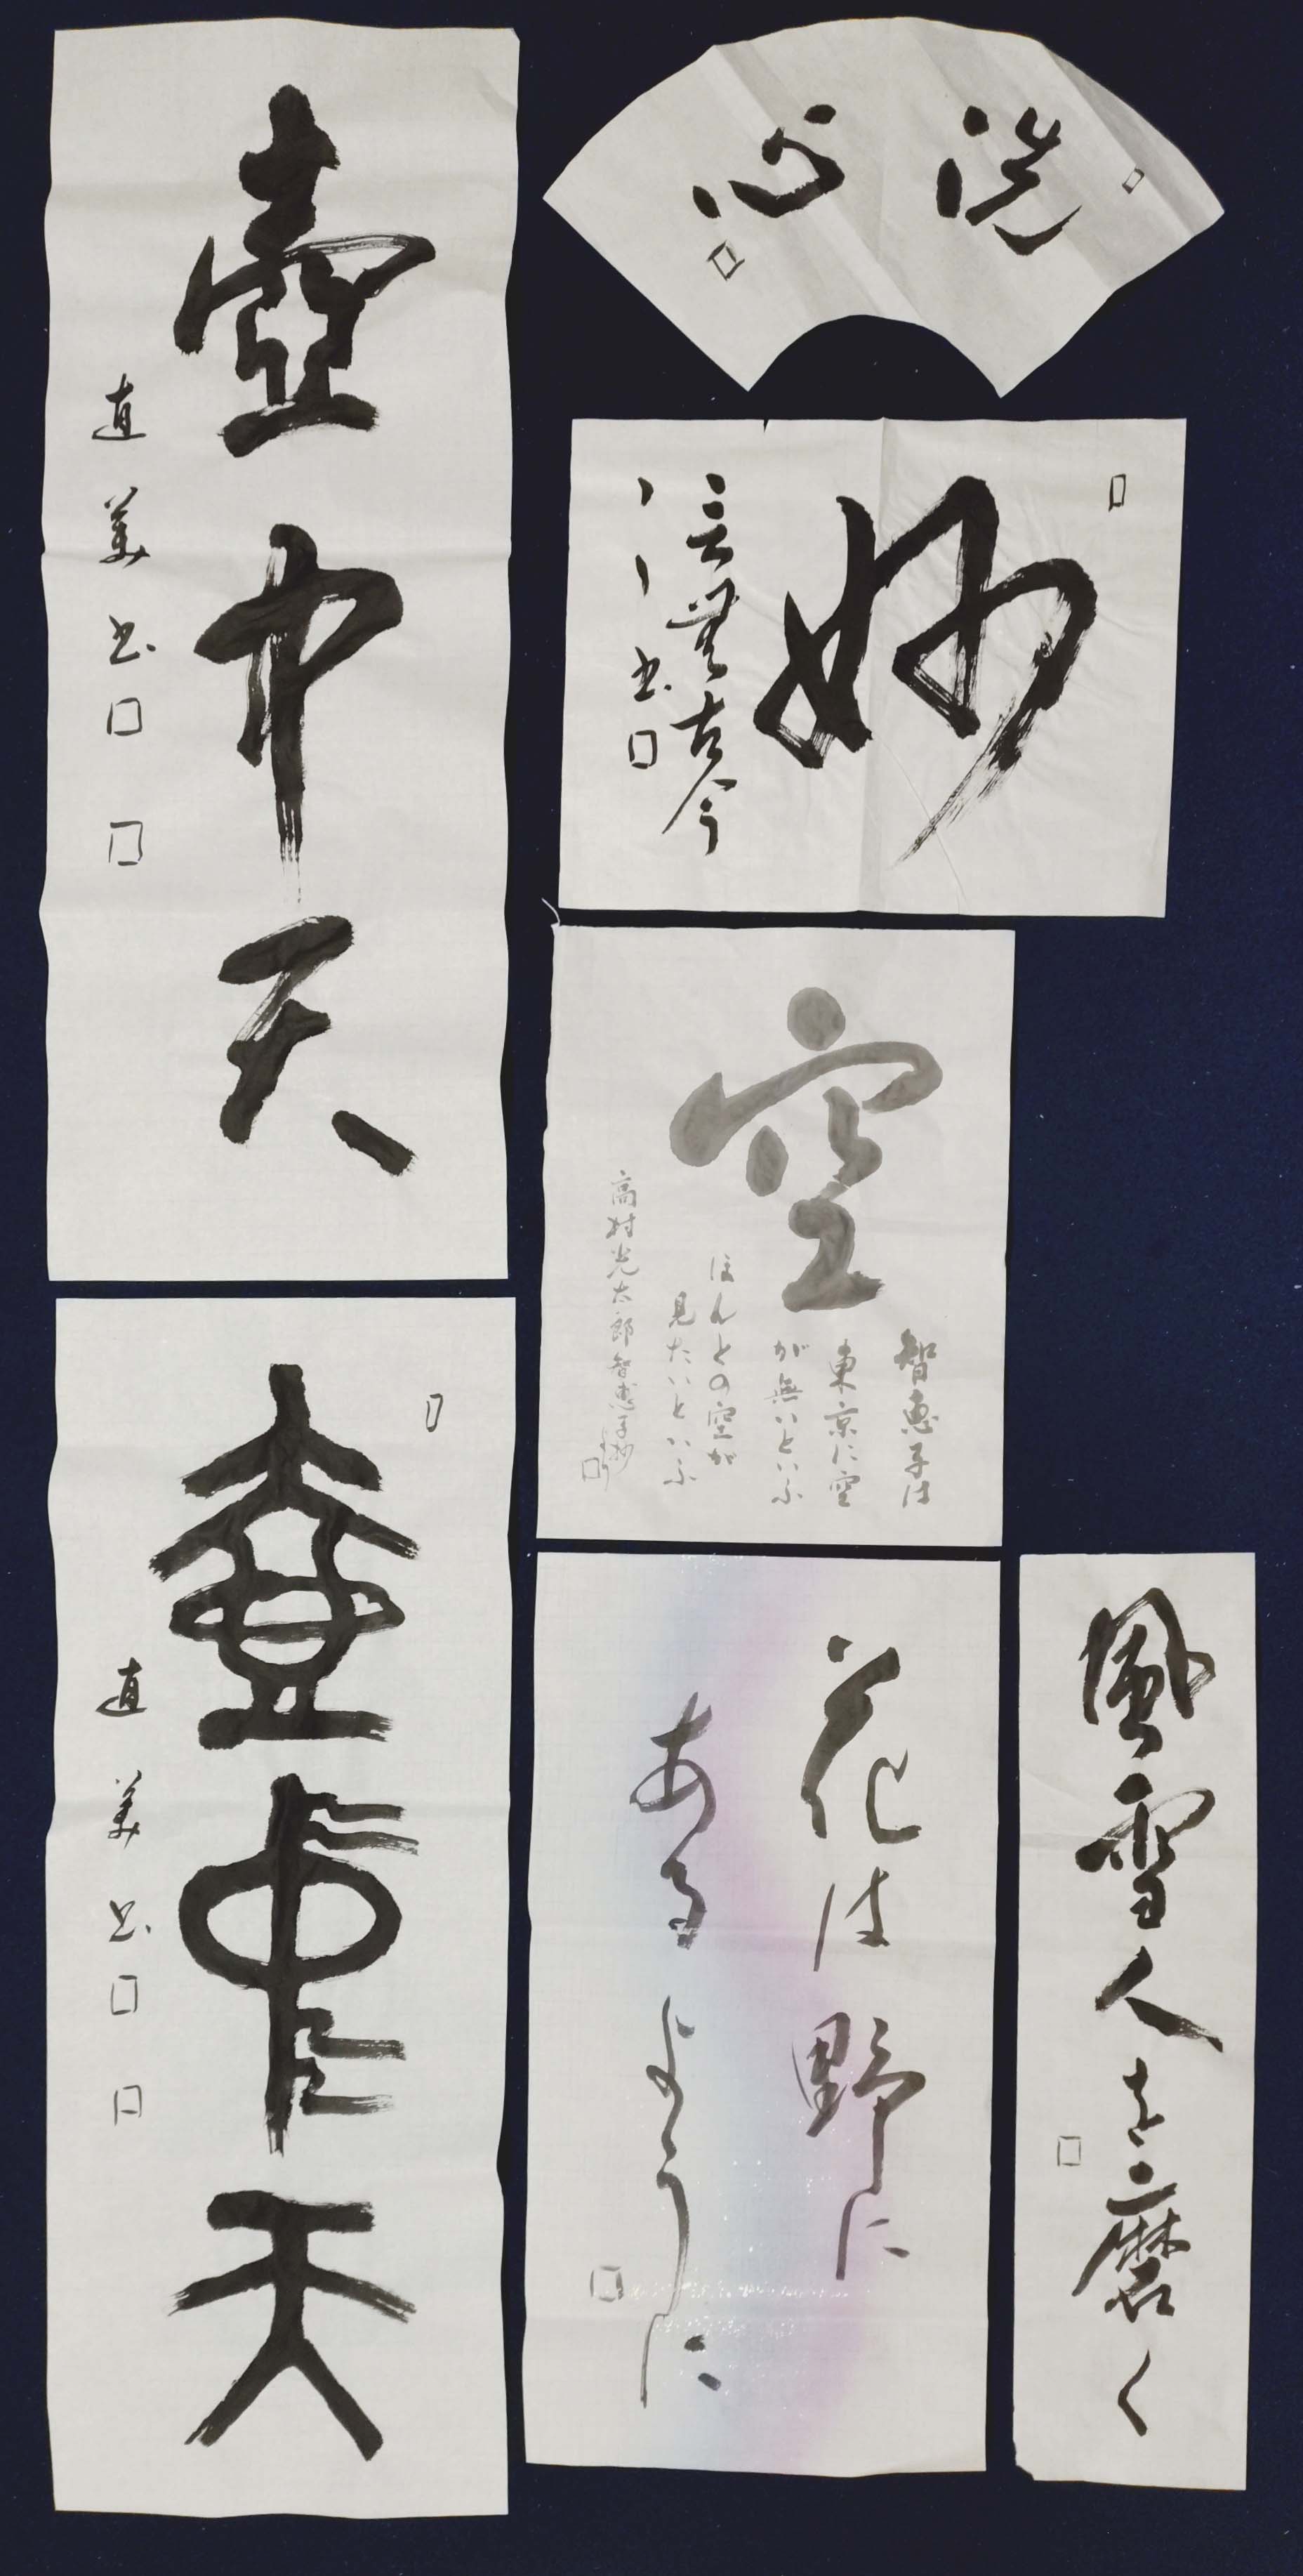 洗心
妙
云無古今
書
壺中天
直美書
空
智恵子は
東京に空
が無いといふ
ほんとの空が
見たいといふ
高村光太郎智恵子抄
壺中天
直美書
花は野に
あるように
風雪人を磨く